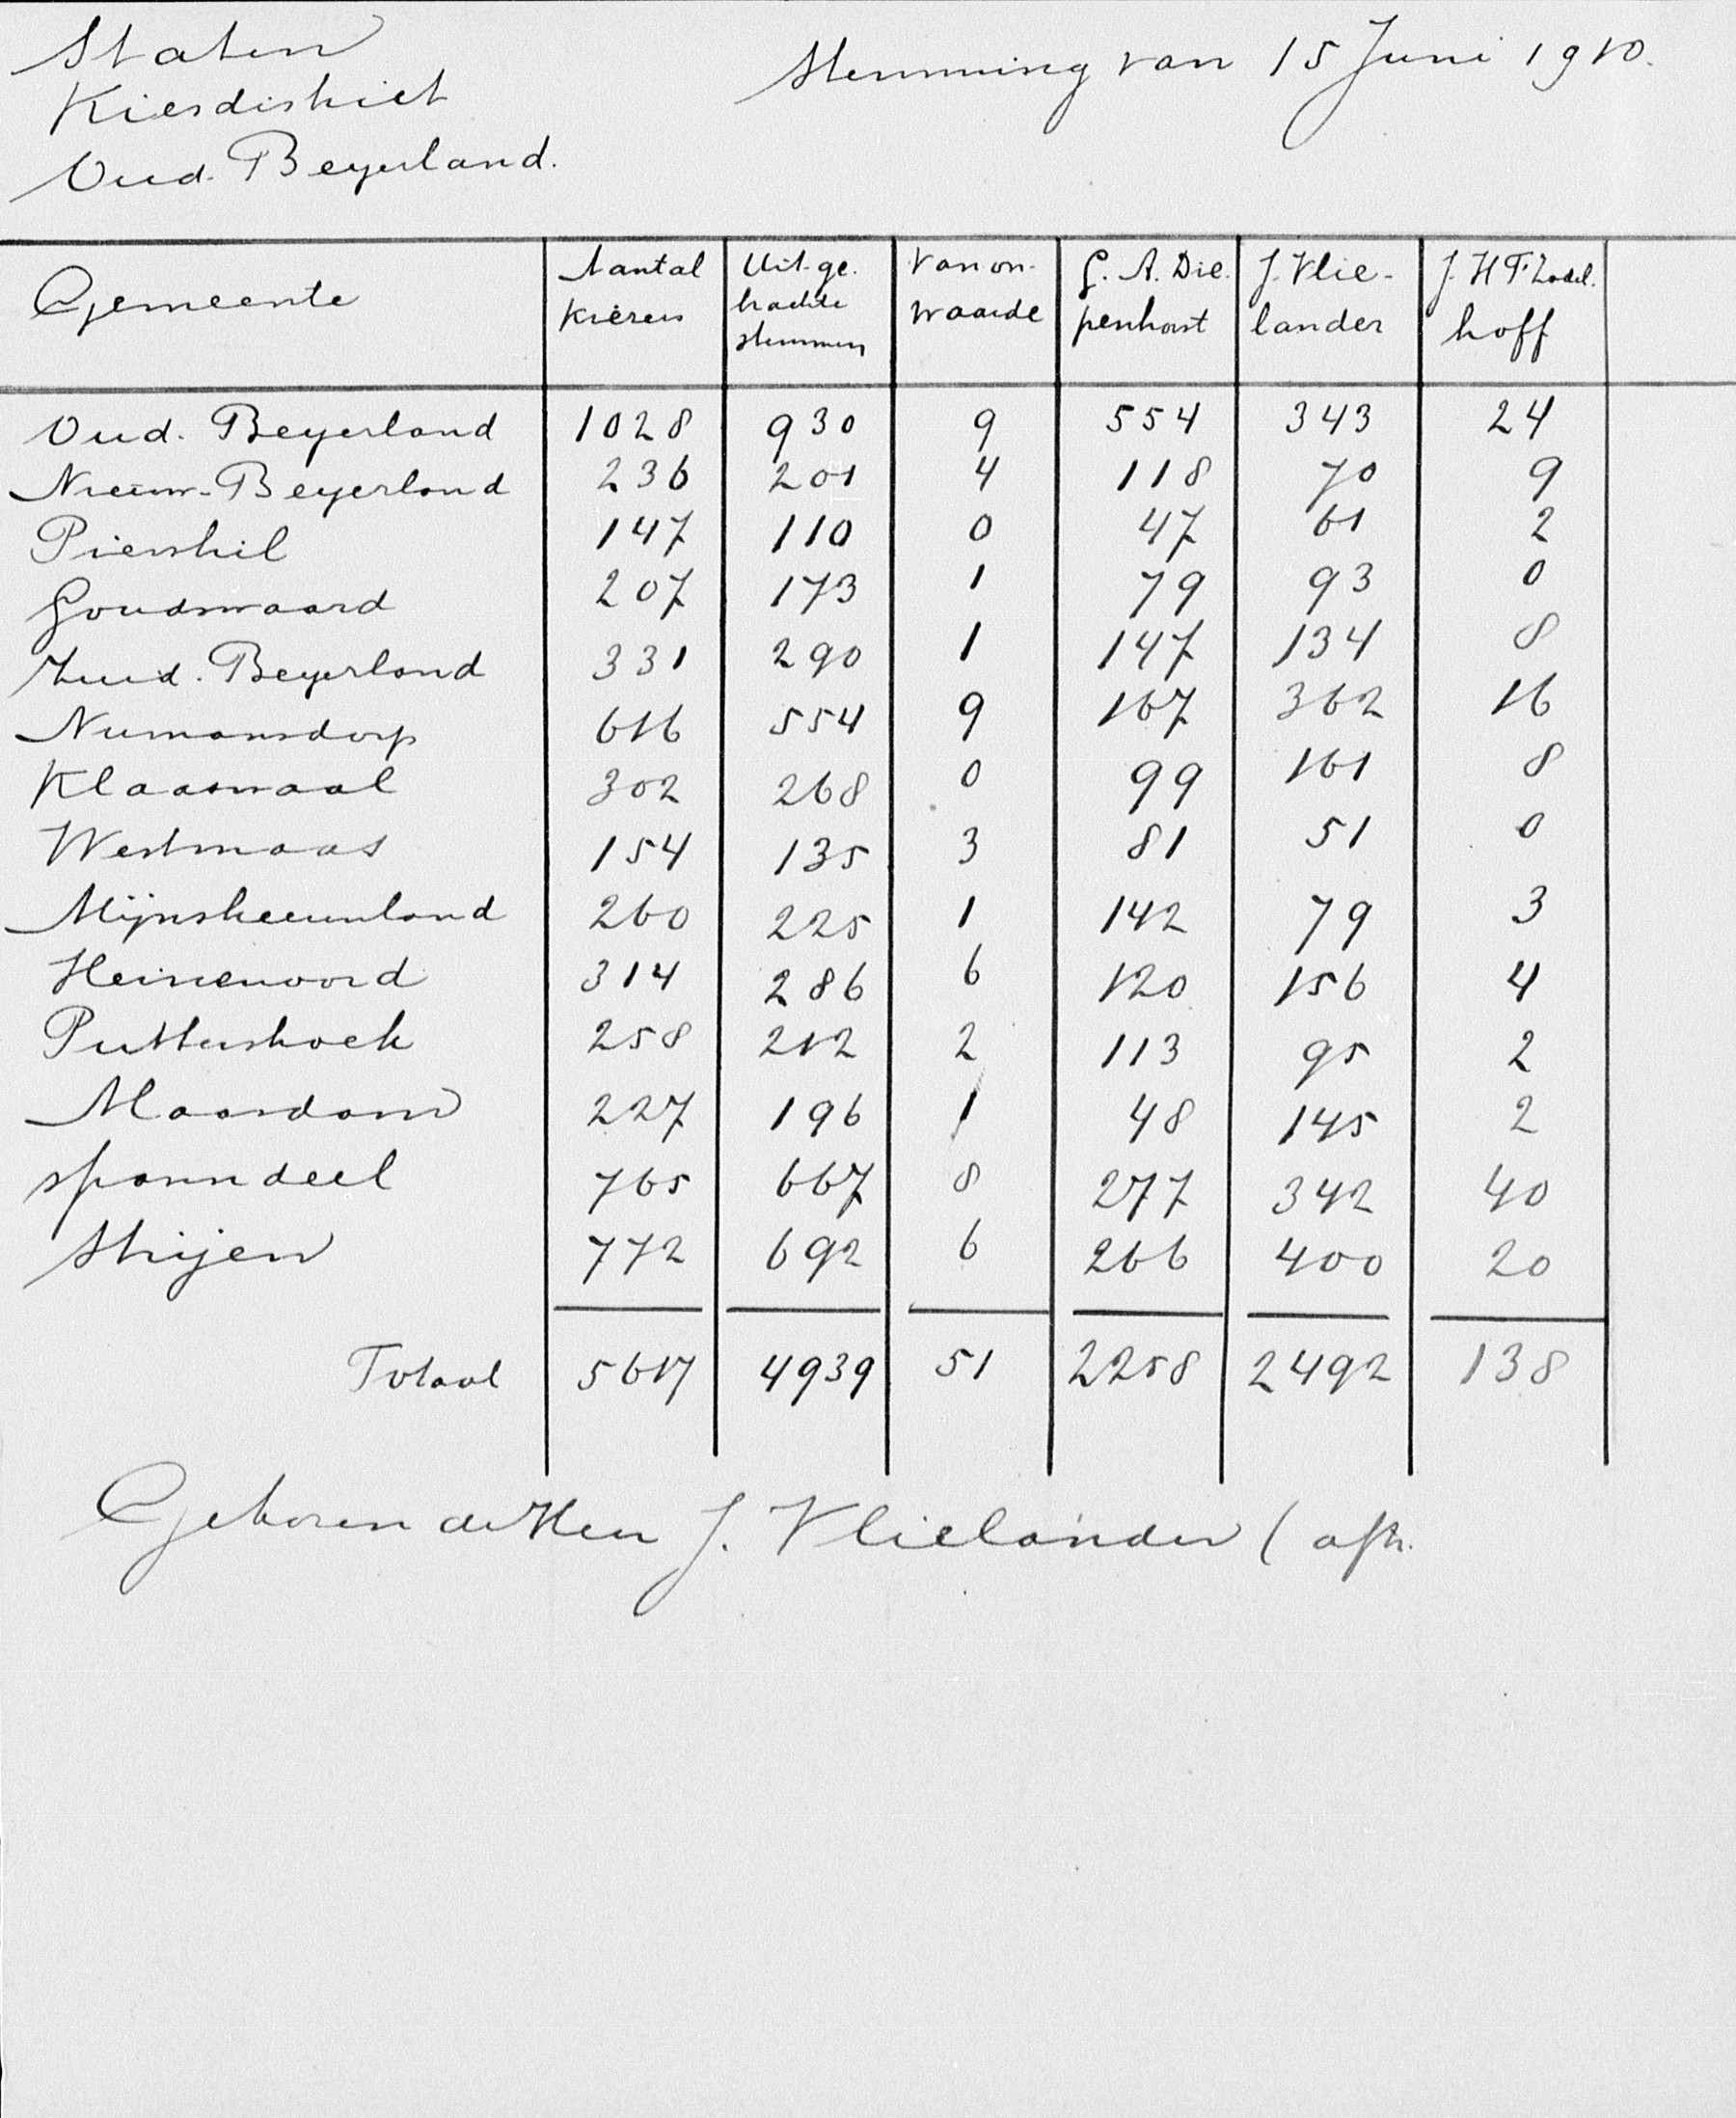 Staten
Kiesdistrict
Oud. Beyerland.
Stemming van 15 Juni 1910.
Gemeente | Aantal kiezers | Uitge. brachte stemmen | van on- waarde | G. A. Die. penhorst | J. Vlie- lander | J. H. F. hoff
Oud. Beyerland 1028 930 9 554 343 24
Nieuw-Beyerland 236 201 4 118 70 9
Piershil 147 110 0 47 61 2
Goudswaard 207 173 1 79 93 0
Zuid. Beyerland 331 290 1 147 134 8
Numansdorp 616 554 9 167 362 16
Klaaswaal 302 268 0 99 161 8
Westmaas 154 135 3 81 51 0
Mijnsheerenland 260 225 1 142 79 3
Heinenoord 314 286 6 120 156 4
Puttershoek 258 212 2 113 95 2
Maasdam 227 196 1 48 145 2
's Gravendeel 765 667 8 277 342 40
Strijen 772 692 6 266 400 20
Totaal 5617 4939 51 2258 2492 138
Gekozen de Heer J. Vlielander (aftr.